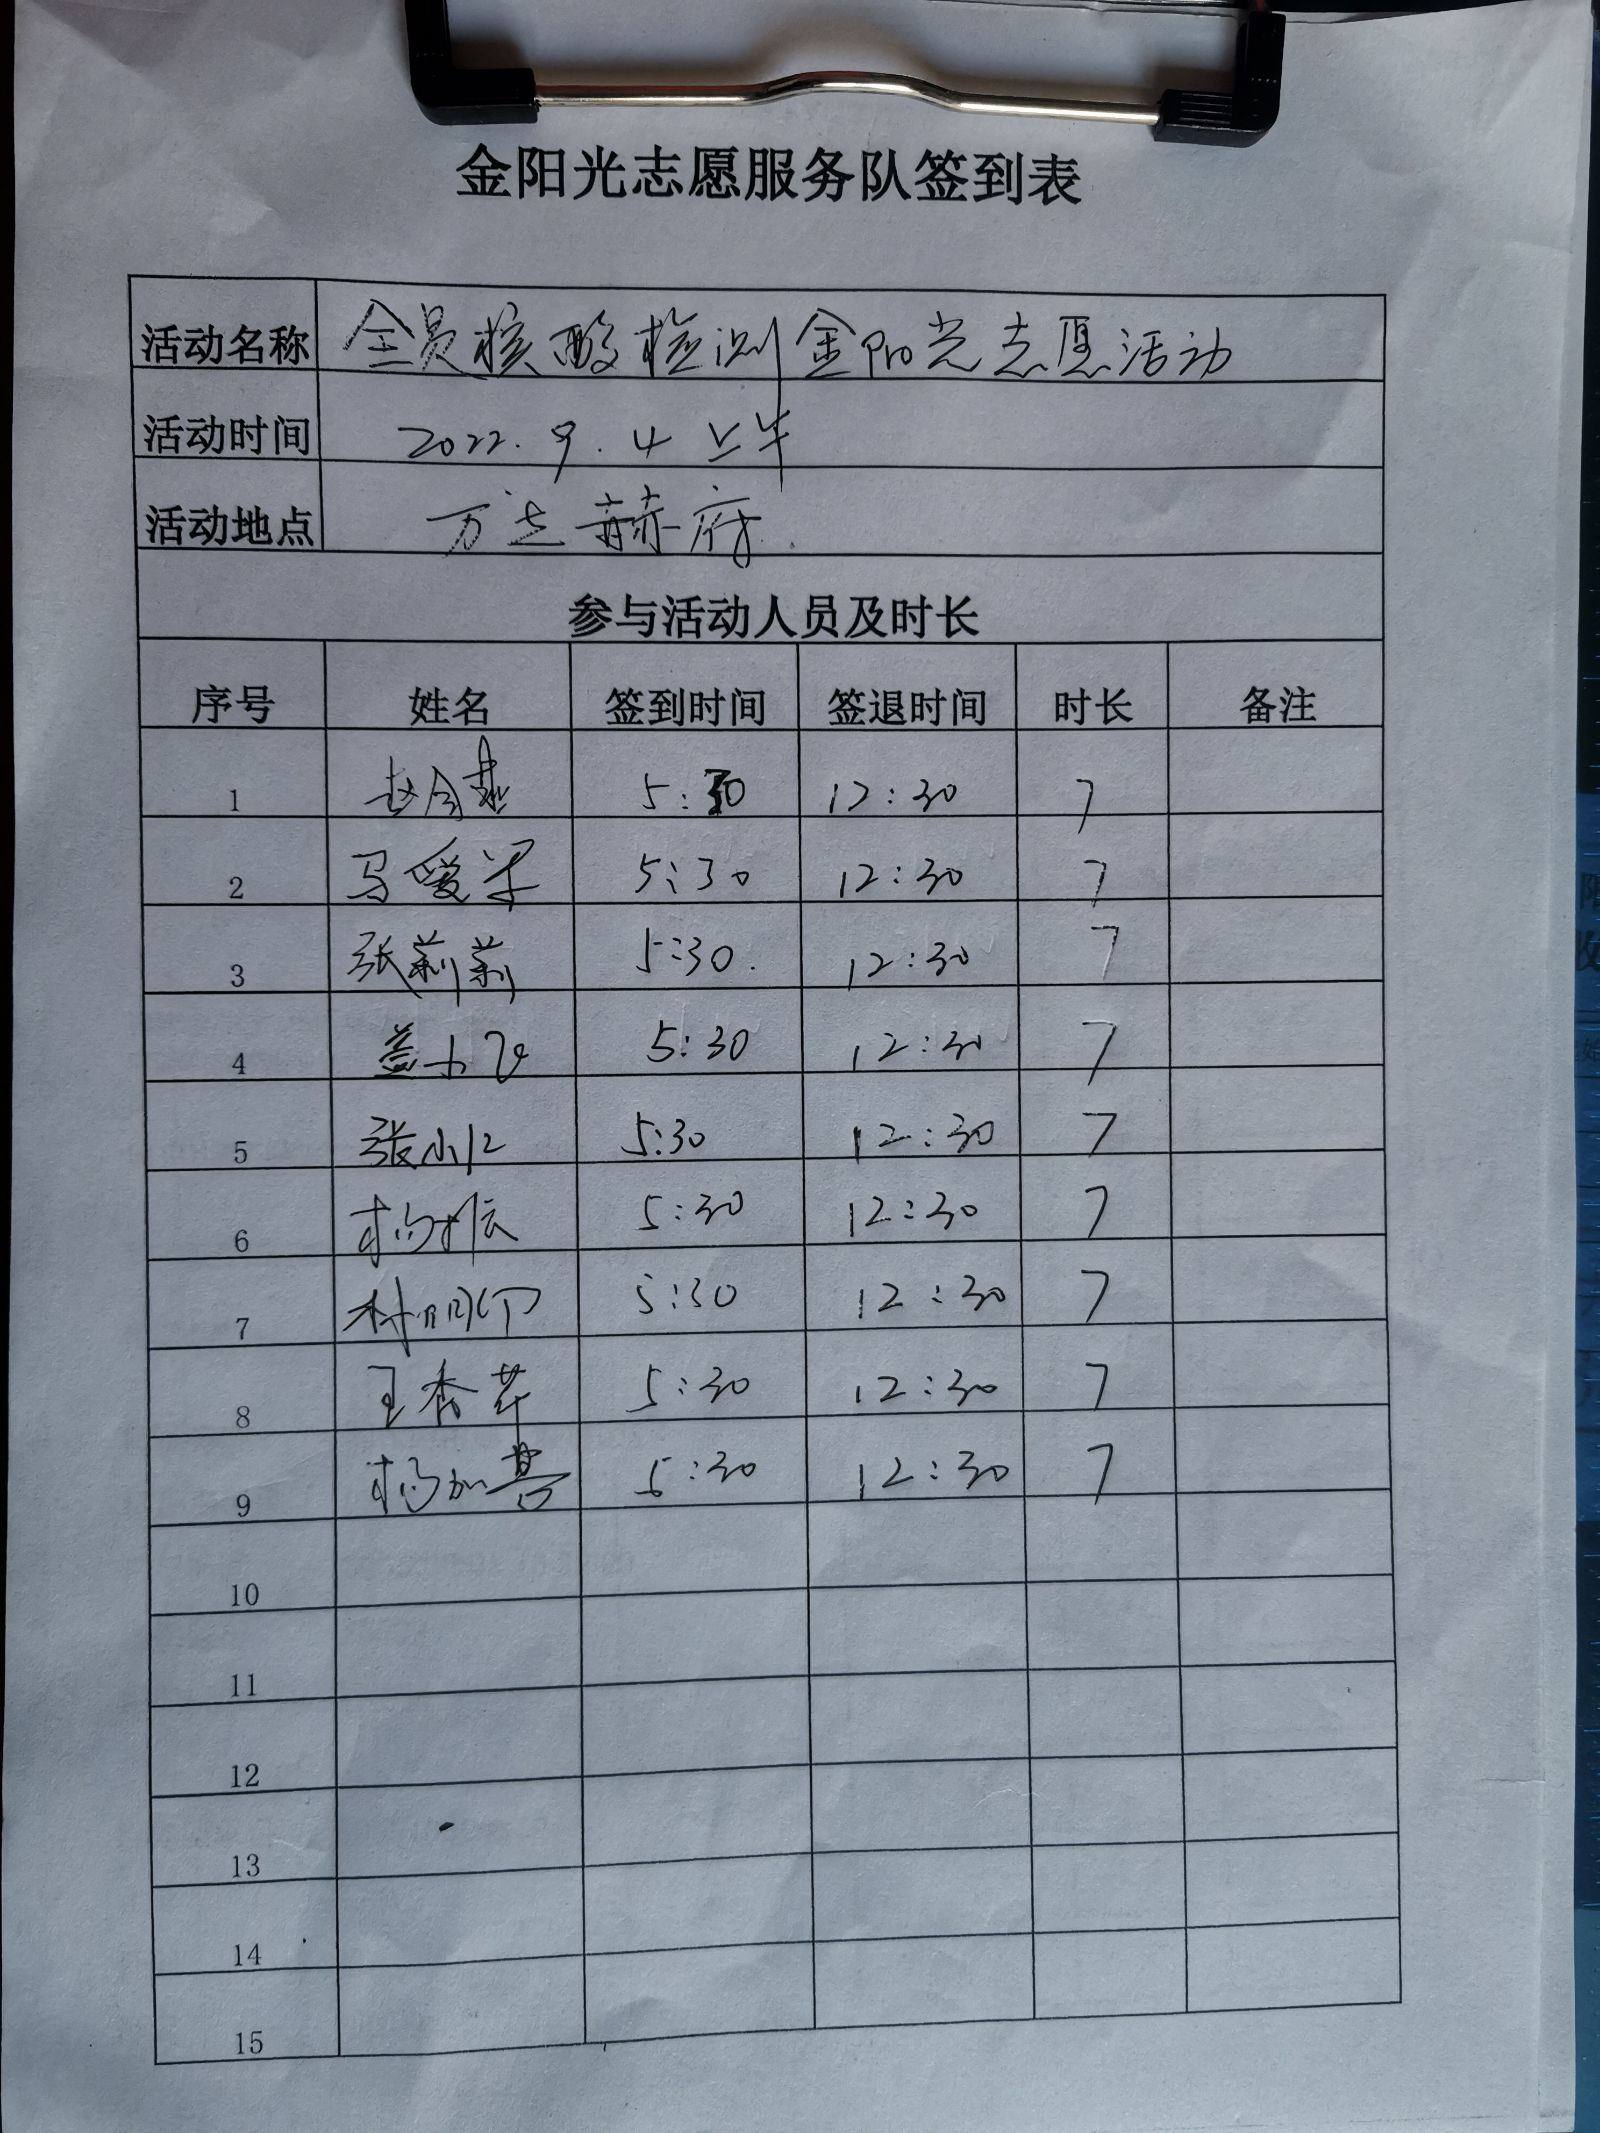 金阳光志愿服务队签到表
活动名称 全员核酸检测金阳光志愿活动
活动时间 2022.9.4 上午
活动地点 万达赫府
参与活动人员及时长
序号 姓名 签到时间 签退时间 时长 备注
1 赵金燕 5:30 12:30 7
2 马爱翠 5:30 12:30 7
3 张莉莉 5:30 12:30 7
4 盖小飞 5:30 12:30 7
5 张小仁 5:30 12:30 7
6 杨振 5:30 12:30 7
7 5:30 12:30 7
8 王秀芹 5:30 12:30 7
9 杨加善 5:30 12:30 7
10
11
12
13
14
15